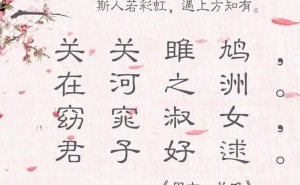 斯人若彩虹，遇上方知有。
关关雎鸠，
在河之洲。
窈窕淑女，
君子好逑。